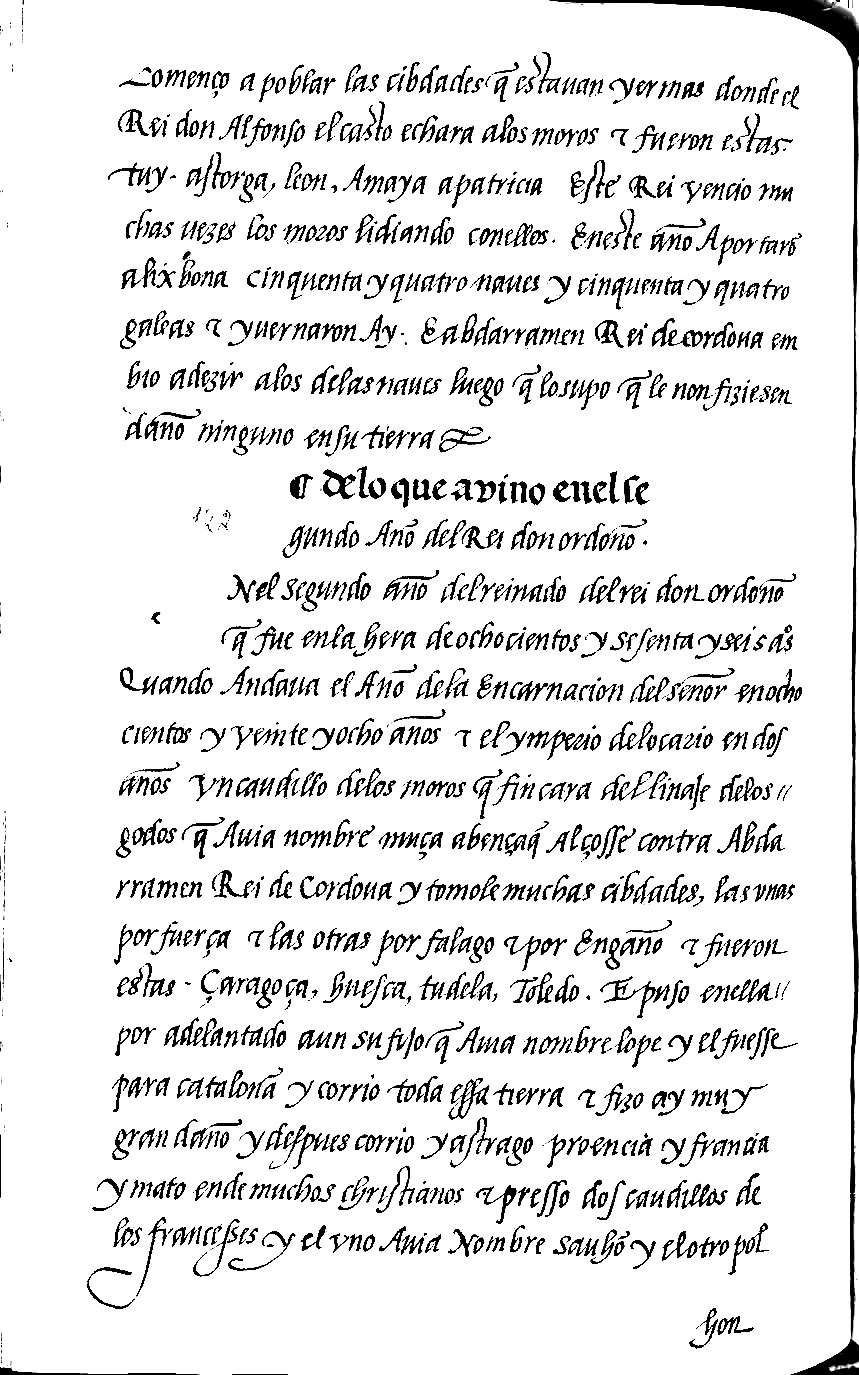 Començo a poblar las cibdades q̃ estauan yermas donde el
Rei don Alfonso el casto echara alos moros τ fueron estas
tuy. astorga, leon, Amaya apatricia Este Rei vencio mu
chas uezes los moros lidiando conellos. Eneste año Aportarõ
a lixbona cinquenta y quatro naues y cinquenta y quatro
galeas τ yuernaron Ay. E abdarramen Rei de cordoua em
bio adezir alos delas naues luego q̃ lo supo q̃ le non fiziesen
daño ninguno en su tierra
¶ delo que avino enel se
122
gundo Año del Rei don ordoño.
Nel segundo año del reinado del rei don ordoño
q̃ fue en la hera de ochocientos y sesenta y seis aºs
Quando Andaua el Año dela Encarnacion del señor en ocho
cientos y veinte y ocho años τ el ymperio delocario en dos
años vn caudillo delos moros q̃ fincara del linaje delos //
godos q̃ Auia nombre muça abençaq̃ Alçosse contra Abda
rramen Rei de Cordoua y tomole muchas cibdades, las vnas
por fuerça τ las otras por falago τ por Engaño τ fueron
estas - Çaragoça, huesca, tudela, Toledo. E puso enella //
por adelantado aun su fijo q̃ Auia nombre lope y el fuesse
para cataloña y corrio toda essa tierra τ fizo ay muy
gran daño y despues corrio y astrago proencia y francia
y mato ende muchos christianos τ presso dos caudillos de
los francesses y el vno Auia Nombre sauhõ y el otro pol
hon